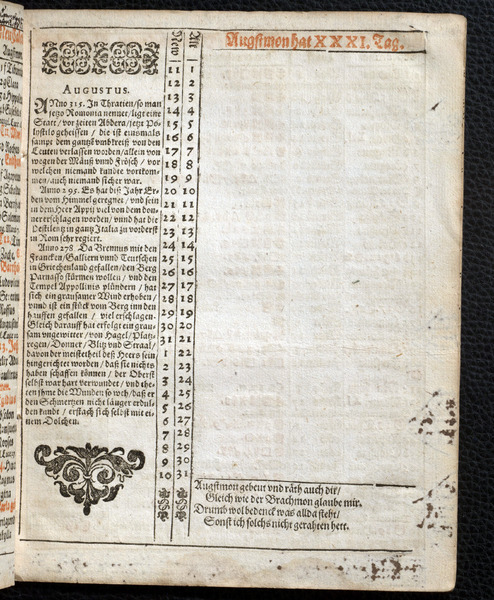 AUGUSTUS.
ANno 315. In Thratien/so man
jetzo Romonia nennet/ligt eine
Statt/vor zeiten Abdera/jetzt Po-
lystilo geheissen/ die ist einsmals
sampt dem gantzē vmbkreiß von den
Leuten verlassen worden/allein von
wegen der Mäuß vnnd Frösch/ vor
welchen niemand kundte vortkom-
men/auch niemand sicher war.
Anno 295. Es hat diß Jahr Er-
den vom Himmel geregnet/ vnd sein
in dem Heer Appij viel von dem don-
ner erschlagen worden/ vnnd hat die
Pestilentz in gantz Italia zu vorderst
in Rom sehr regiert.
Anno 278. Da Brennus mit den
Francken/Galliern vnnd Teutschen
in Griechenland gefallen/den Berg
Parnasso stürmen wollen/ vnd den
Tempel Appollinis plündern/ hat
sich ein grausamer Wind erhoben/
vnnd ist ein stück vom Berg inn den
hauffen gefallen / viel erschlagen.
Gleich darauff hat erfolgt ein grau-
sam vngewitter/von Hagel/Platz-
regen/Donner/ Blitz vnd Straal/
davon der meistetheil deß Heers sein
hingerichtet worden/ daß sie nichts
haben schaffen können/ der Oberst
selbst war hart verwundet/ vnd the-
ten jhme die Wunden so weh/daß er
den Schmertzen nicht länger erdul-
den kundt/ erstach sich selbst mit ei-
nem Dolchen.
New
11
12
13
14
15
16
17
18
19
20
21
22
23
24
25
26
27
28
29
30
31
1
2
3
4
5
6
7
8
9
10
Alt
1
2
3
4
5
6
7
8
9
10
11
12
13
14
15
16
17
18
19
20
21
22
23
24
25
26
27
28
29
30
31
Augstmon hat XXXI. Tag.
Augstmon gebeut vnd räth auch dir/
Gleich wie der Brachmon glaube mir.
Drumb wol bedenck was allda steht/
Sonst ich solchs nicht gerahten hett.